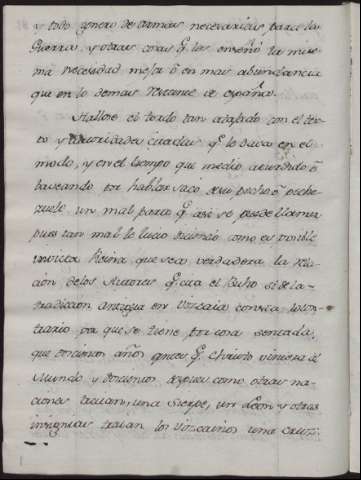 y todo genero de armas necesarias para la
Guerra, y otras cosas q.e les enseñó la mis-
ma necesidad mejor ó en mas abundancia
que en lo demas restante de españa.
Hallose el tordo tan atajado con el tex-
to y Autoridades citadas q.e le daba en el
modo, y en el tiempo que medio aturdido ó
baseando por hablar sacó de su pecho ó peche-
zuelo un mal parto q.e asi se puede llamar
pues tan mal le lucio diciendo como es posible
invicta Reina que sea verdadera la rela-
cion de los Autores q.e cita el Buho si de la
tradiccion antigua en Vizcaia consta lo con-
trario por que se tiene por cosa sentada,
que docientos años antes q.e Christo viniera al
Mundo y docientos despues como otras na-
ciones traian, una Sierpe, un Leon y otras
insignias traian los Vizcainos una Cruz: